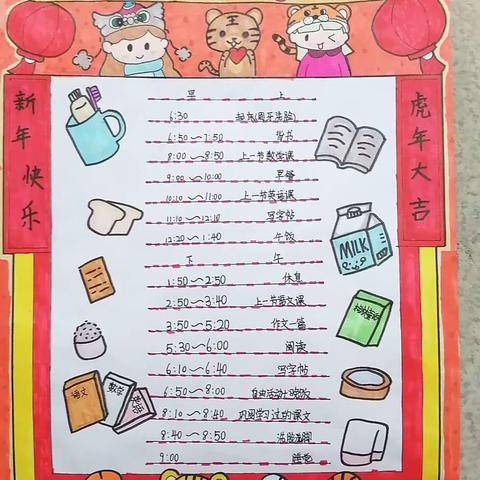 新年快乐
虎年大吉
早 上
6:30 起床(刷牙洗脸)
6:50~7:50 背书
8:00~8:50 上一节数学课
9:00~10:00 早餐
10:10~11:00 上一节英语课
11:10~12:10 写字帖
12:20~1:40 午饭
下 午
1:50~2:50 休息
2:50~3:40 上一节语文课
3:50~5:20 作文一篇
5:30~6:00 阅读
6:10~6:40 写字帖
6:50~8:00 自由活动+晚饭
8:10~8:40 巩固学习过的课文
8:40~8:50 洗脸
9:00 睡觉
MILK
语文
数学
英语